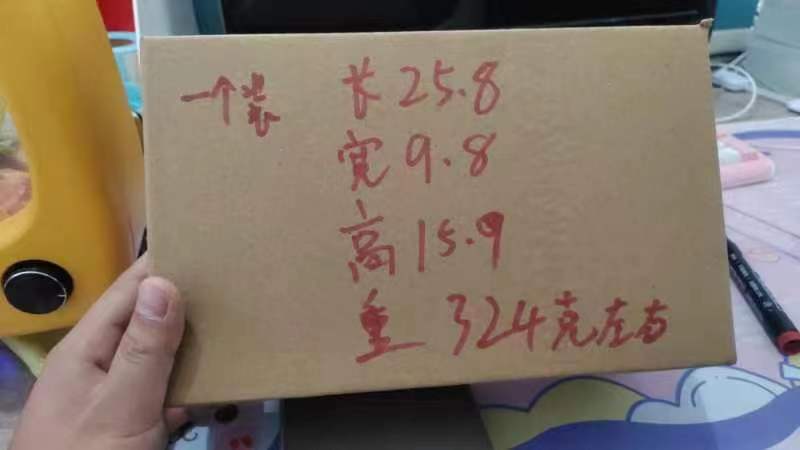 一个装 长25.8
宽9.8
高15.9
重 324克左右